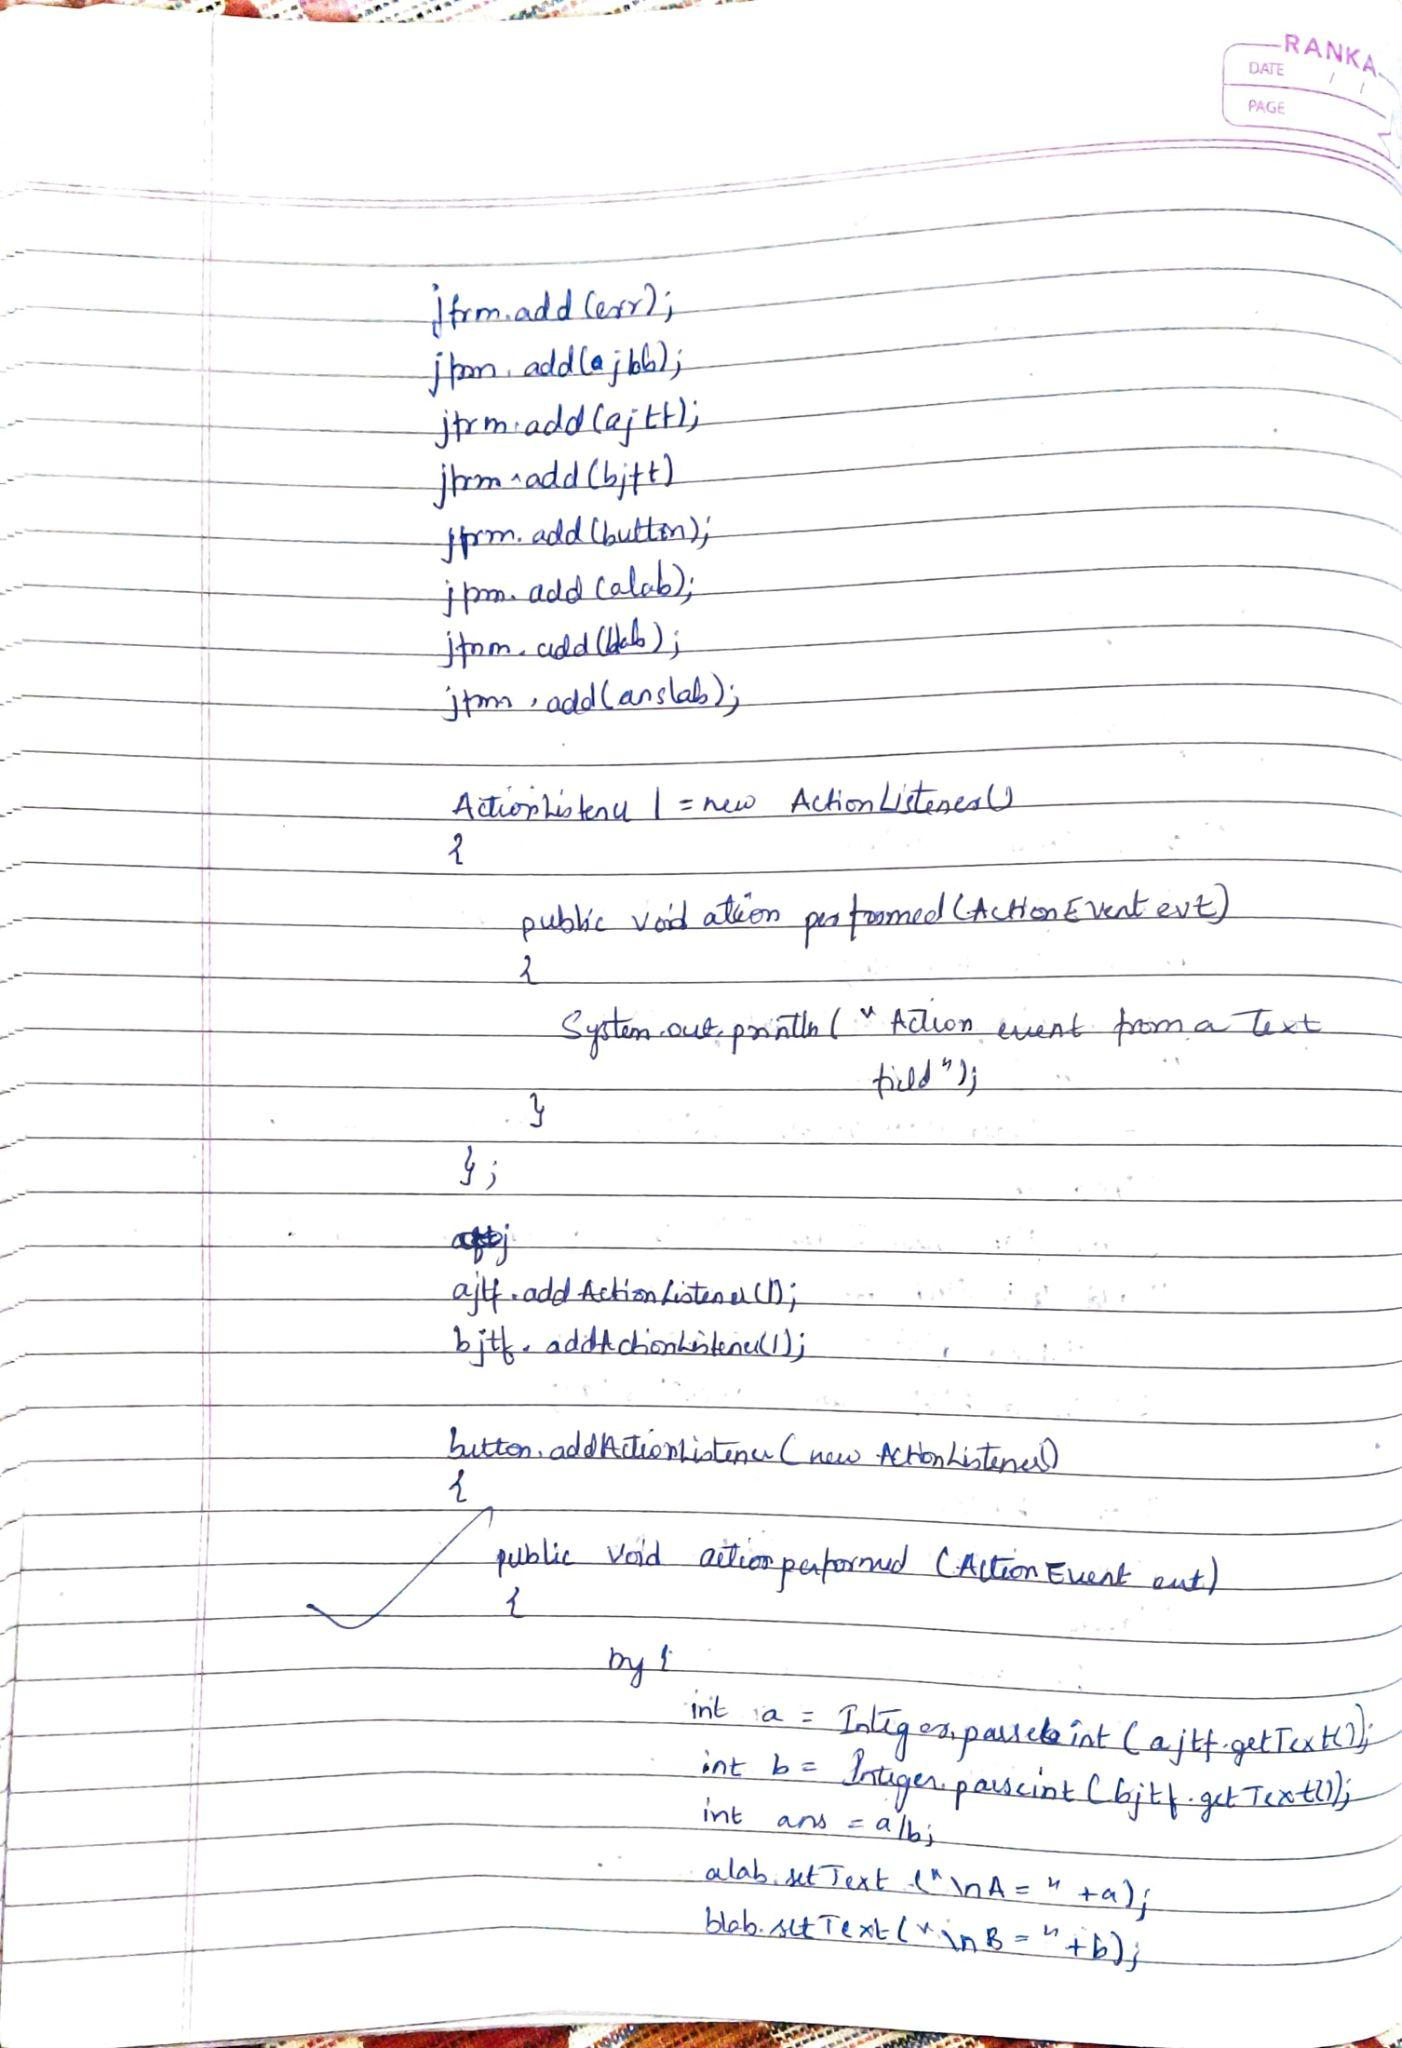 RANKA
DATE / /
PAGE
jfrm.add(err);
jfrm.add(ajbb);
jfrm.add(ajtf);
jfrm.add(bjtf)
jfrm.add(button);
jfrm.add(alab);
jfrm.add(blab);
jfrm.add(anslab);
ActionListener l = new ActionListener()
{
public void ation performed(ActionEvent evt)
{
System.out.println("Action event from a Text
field");
}
};
ajtf.addActionListener(l);
bjtf.addActionListener(l);
button.addActionListener(new ActionListener()
{
public void actionperformed (ActionEvent evt)
{
try {
int a = Integer.parseint (ajtf.getText());
int b = Integer.parseint (bjtf.getText());
int ans = a/b;
alab.setText ("\nA = " +a);
blab.setText("\nB = " +b);